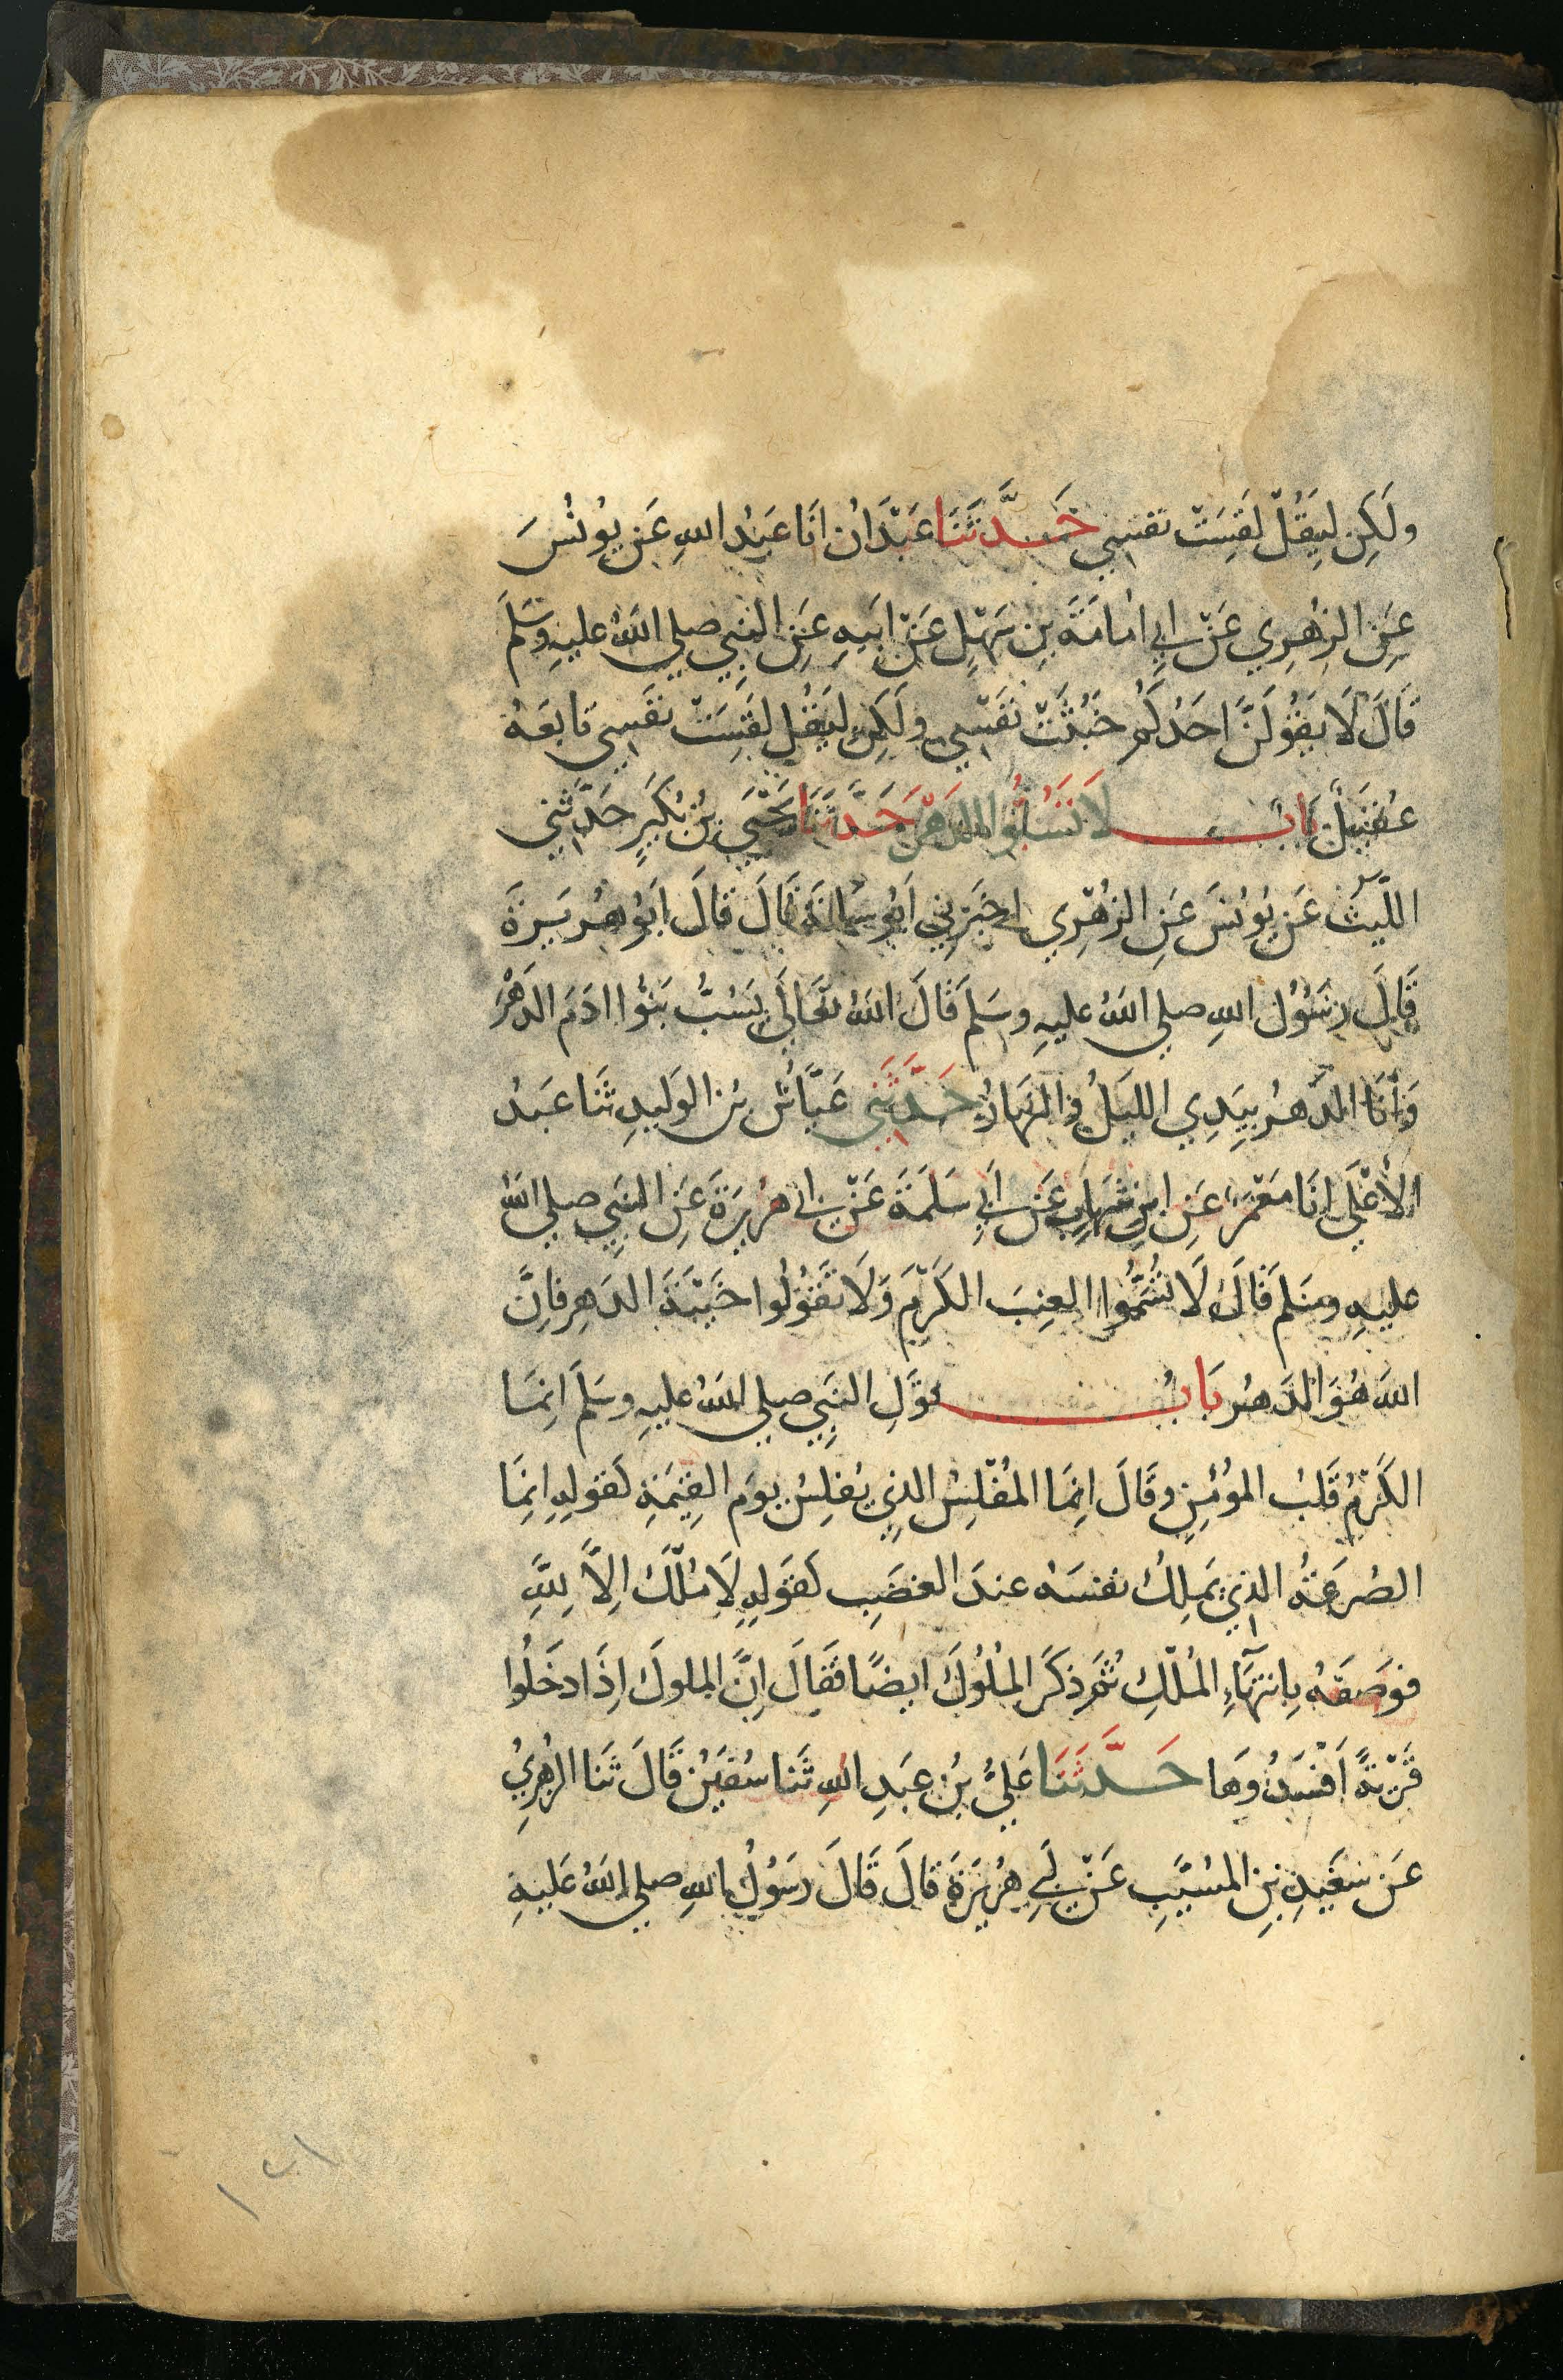 ولَكِن لِيَقُلْ لَقِسَتْ نفسِي حَدَّثَنَا عَبْدَانُ انَا عَبْدُ اللهِ عَن يُونُسَ
عَنِ الزُهْرِي عَنْ ابِي امَامَةَ بنِ سَهْلٍ عَنْ ابِيهِ عَنِ النبِي صلي اللهُ عليهِ وسَلمَ
قَالَ لَا يَقُولَنَّ احَدُكُم خَبُثَتْ نَفسِي ولَكِن لِيَقُل لَقِسَتْ نَفسِي تَابعَهُ
عُقَيلٌ بَابٌ لَا تَسُبُّوا الدَهْرَ حَدَّثَنَا يَحْيَى بنُ بُكَيرٍ حَدَّثَنِي
اللّيثُ عَن يُونُسَ عَنِ الزُهْرِي اخبَرَنِي اَبُو سَلمَةَ قَالَ قَالَ اَبُو هُرَيرَةَ
قَالَ رَسُولُ اللهِ صلي اللهُ عليهِ وسَلمَ قَالَ اللهُ تَعَالَى يَسُبُّ بَنُوا ادَمَ الدَهْرَ
وَاَنَا الدَهرُ بِيَدِي الليَلُ والنَهَارُ حَدَّثَنِي عَيَّاشُ بنُ الوَليدِ ثَنَا عَبدُ
الأَعْلَى انَا مَعْمَرٌ عَنِ ابنِ شِهَابٍ عَن ابِي سَلَمَةَ عَنْ ابي هُرَيرَةَ عَنِ النبِي صلي اللهُ
عليهِ وسَلم قَالَ لَا تُسَمُّوا العِنبَ الكَرْمَ وَلَا تَقُولُوا خَيْبَةَ الدَهرِ فَاِنَّ
اللهَ هُوَ الدَهرُ بَابُ قَوْلِ النبِي صلي اللهُ عليهِ وسَلمَ اِنمَا
الكَرْمُ قَلبُ المؤُمِنِ وقَالَ اِنمَا المُفْلِسُ الذِي يُفلِسُ يومَ القِيَمَةِ كَقولِهِ اِنمَا
الصُرَعَةُ الذِي يَملِكُ نفسَهُ عندَ الغضَبِ كَقوَلِهِ لَا مُلْكَ اِلاَّ لِلَّهِ
فوَصَفَهُ بِانتِهَاءِ المُلْكِ ثُمَ ذكَرَ المُلُوكَ ايضًا فَقَالَ اِنَّ الملوكَ اِذَا دخَلُوا
قَرْيَةً اَفْسَدُوهَا حَدَّثَنَا عَليُّ بنُ عبَدِ اللهِ ثَنا سُفيَنُ قَالَ ثَنا الزُهرِيُ
عَن سَعَيدِ بنِ المسُيَّبِ عَنْ ابِي هُرَيرَةَ قَالَ قَالَ رَسَوُلُ اللهِ صلي اللهُ عَليهِ